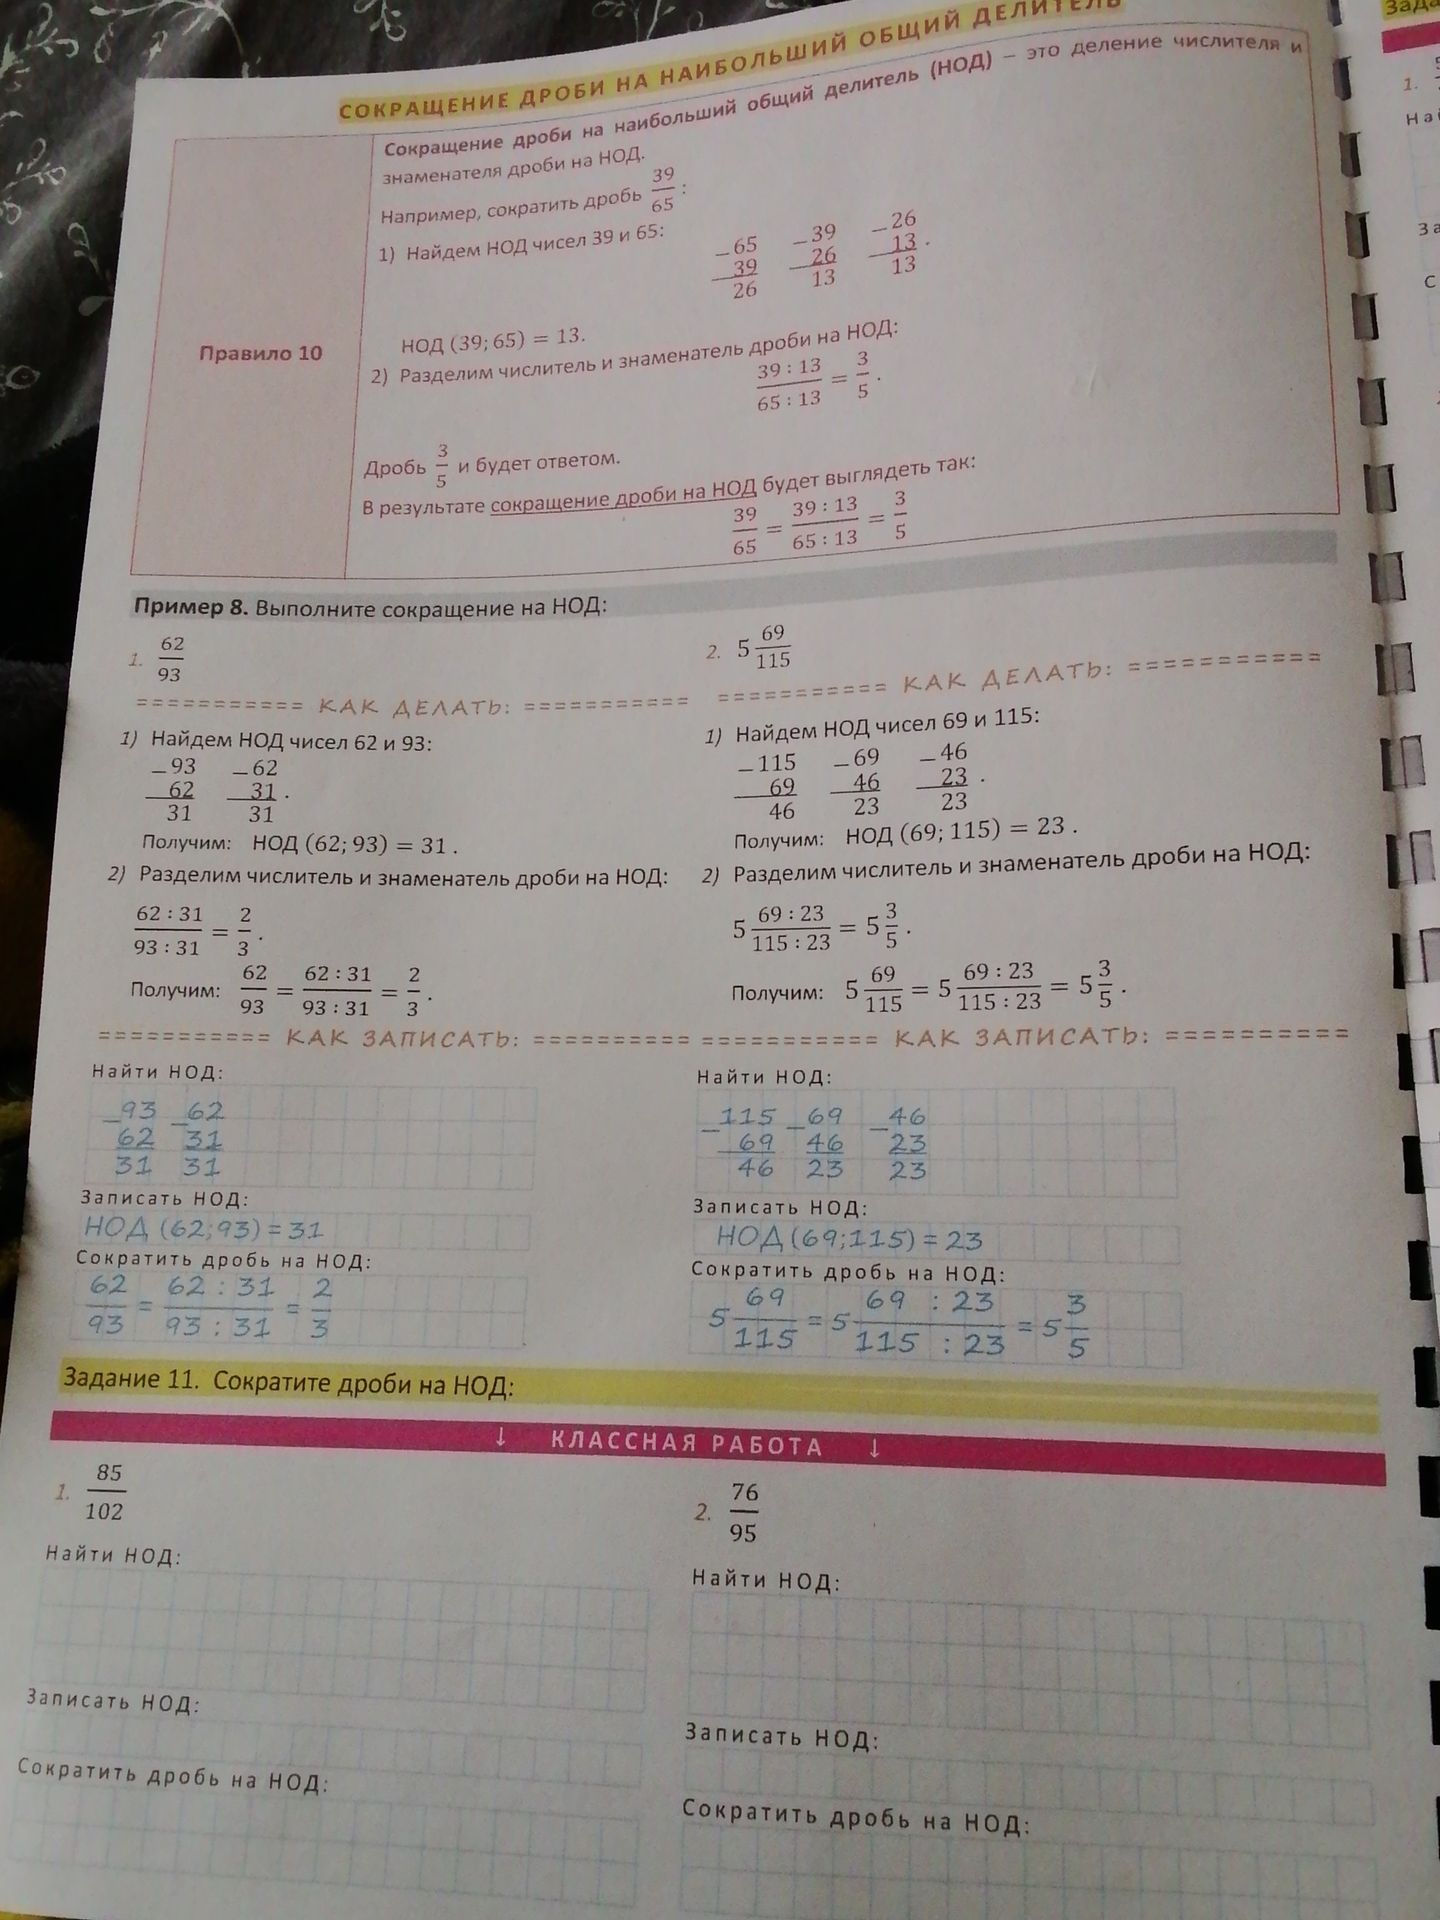 СОКРАЩЕНИЕ ДРОБИ НА НАИБОЛЬШИЙ ОБЩИЙ ДЕЛИТЕЛЬ
Правило 10
Сокращение дроби на наибольший общий делитель (НОД) – это деление числителя и
знаменателя дроби на НОД.
Например, сократить дробь 39/65 :
1) Найдем НОД чисел 39 и 65:
−65 −39 −26
39 26 13 .
26 13 13
НОД (39; 65) = 13.
2) Разделим числитель и знаменатель дроби на НОД:
39 : 13 / 65 : 13 = 3/5 .
Дробь 3/5 и будет ответом.
В результате сокращение дроби на НОД будет выглядеть так:
39/65 = 39 : 13 / 65 : 13 = 3/5
Пример 8. Выполните сокращение на НОД:
1. 62/93
=========== КАК ДЕЛАТЬ: ===========
1) Найдем НОД чисел 62 и 93:
−93 −62
62 31 .
31 31
Получим: НОД (62; 93) = 31 .
2) Разделим числитель и знаменатель дроби на НОД:
62 : 31 / 93 : 31 = 2/3 .
Получим: 62/93 = 62 : 31 / 93 : 31 = 2/3 .
=========== КАК ЗАПИСАТЬ: ==========
Найти НОД:
−93 −62
62 31
31 31
Записать НОД:
НОД (62;93) = 31
Сократить дробь на НОД:
62/93 = 62 : 31 / 93 : 31 = 2/3
2. 5 69/115
=========== КАК ДЕЛАТЬ: ===========
1) Найдем НОД чисел 69 и 115:
−115 −69 −46
69 46 23 .
46 23 23
Получим: НОД (69; 115) = 23 .
2) Разделим числитель и знаменатель дроби на НОД:
5 69 : 23 / 115 : 23 = 5 3/5 .
Получим: 5 69/115 = 5 69 : 23 / 115 : 23 = 5 3/5 .
=========== КАК ЗАПИСАТЬ: ==========
Найти НОД:
−115 −69 −46
69 46 23
46 23 23
Записать НОД:
НОД (69;115) = 23
Сократить дробь на НОД:
5 69/115 = 5 69 : 23 / 115 : 23 = 5 3/5
Задание 11. Сократите дроби на НОД:
↓ КЛАССНАЯ РАБОТА ↓
1. 85/102
Найти НОД:
Записать НОД:
Сократить дробь на НОД:
2. 76/95
Найти НОД:
Записать НОД:
Сократить дробь на НОД:
1.